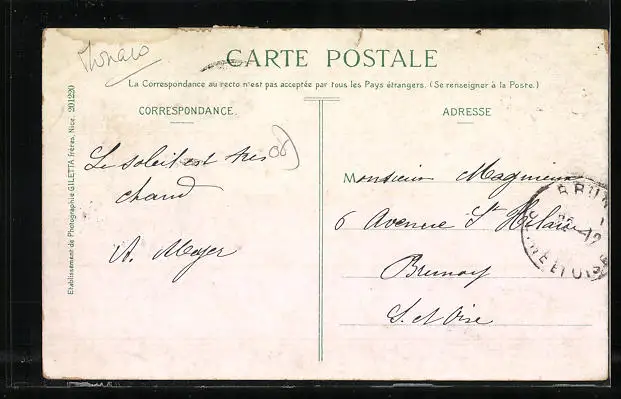 Monaco
CARTE POSTALE
La Correspondance au recto n'est pas acceptée par tous les Pays étrangers. (Se renseigner à la Poste.)
CORRESPONDANCE.
ADRESSE
Etablissement de Photographie GILETTA frères, Nice. 201220
Le soleil est très
chaud
A. Meyer
06
Monsieur Magnieux
6 Avenue St Hilaire
Brunoy
S. et Oise
BRUN